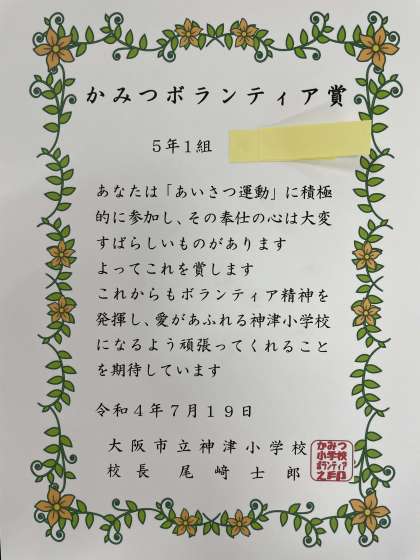 かみつボランティア賞
5年1組
あなたは「あいさつ運動」に積極
的に参加し、その奉仕の心は大変
すばらしいものがあります
よってこれを賞します
これからもボランティア精神を
発揮し、愛があふれる神津小学校
になるよう頑張ってくれること
を期待しています
令和4年7月19日
大阪市立神津小学校
校長 尾﨑士郎
かみつ
小学校
ボランティア
之印